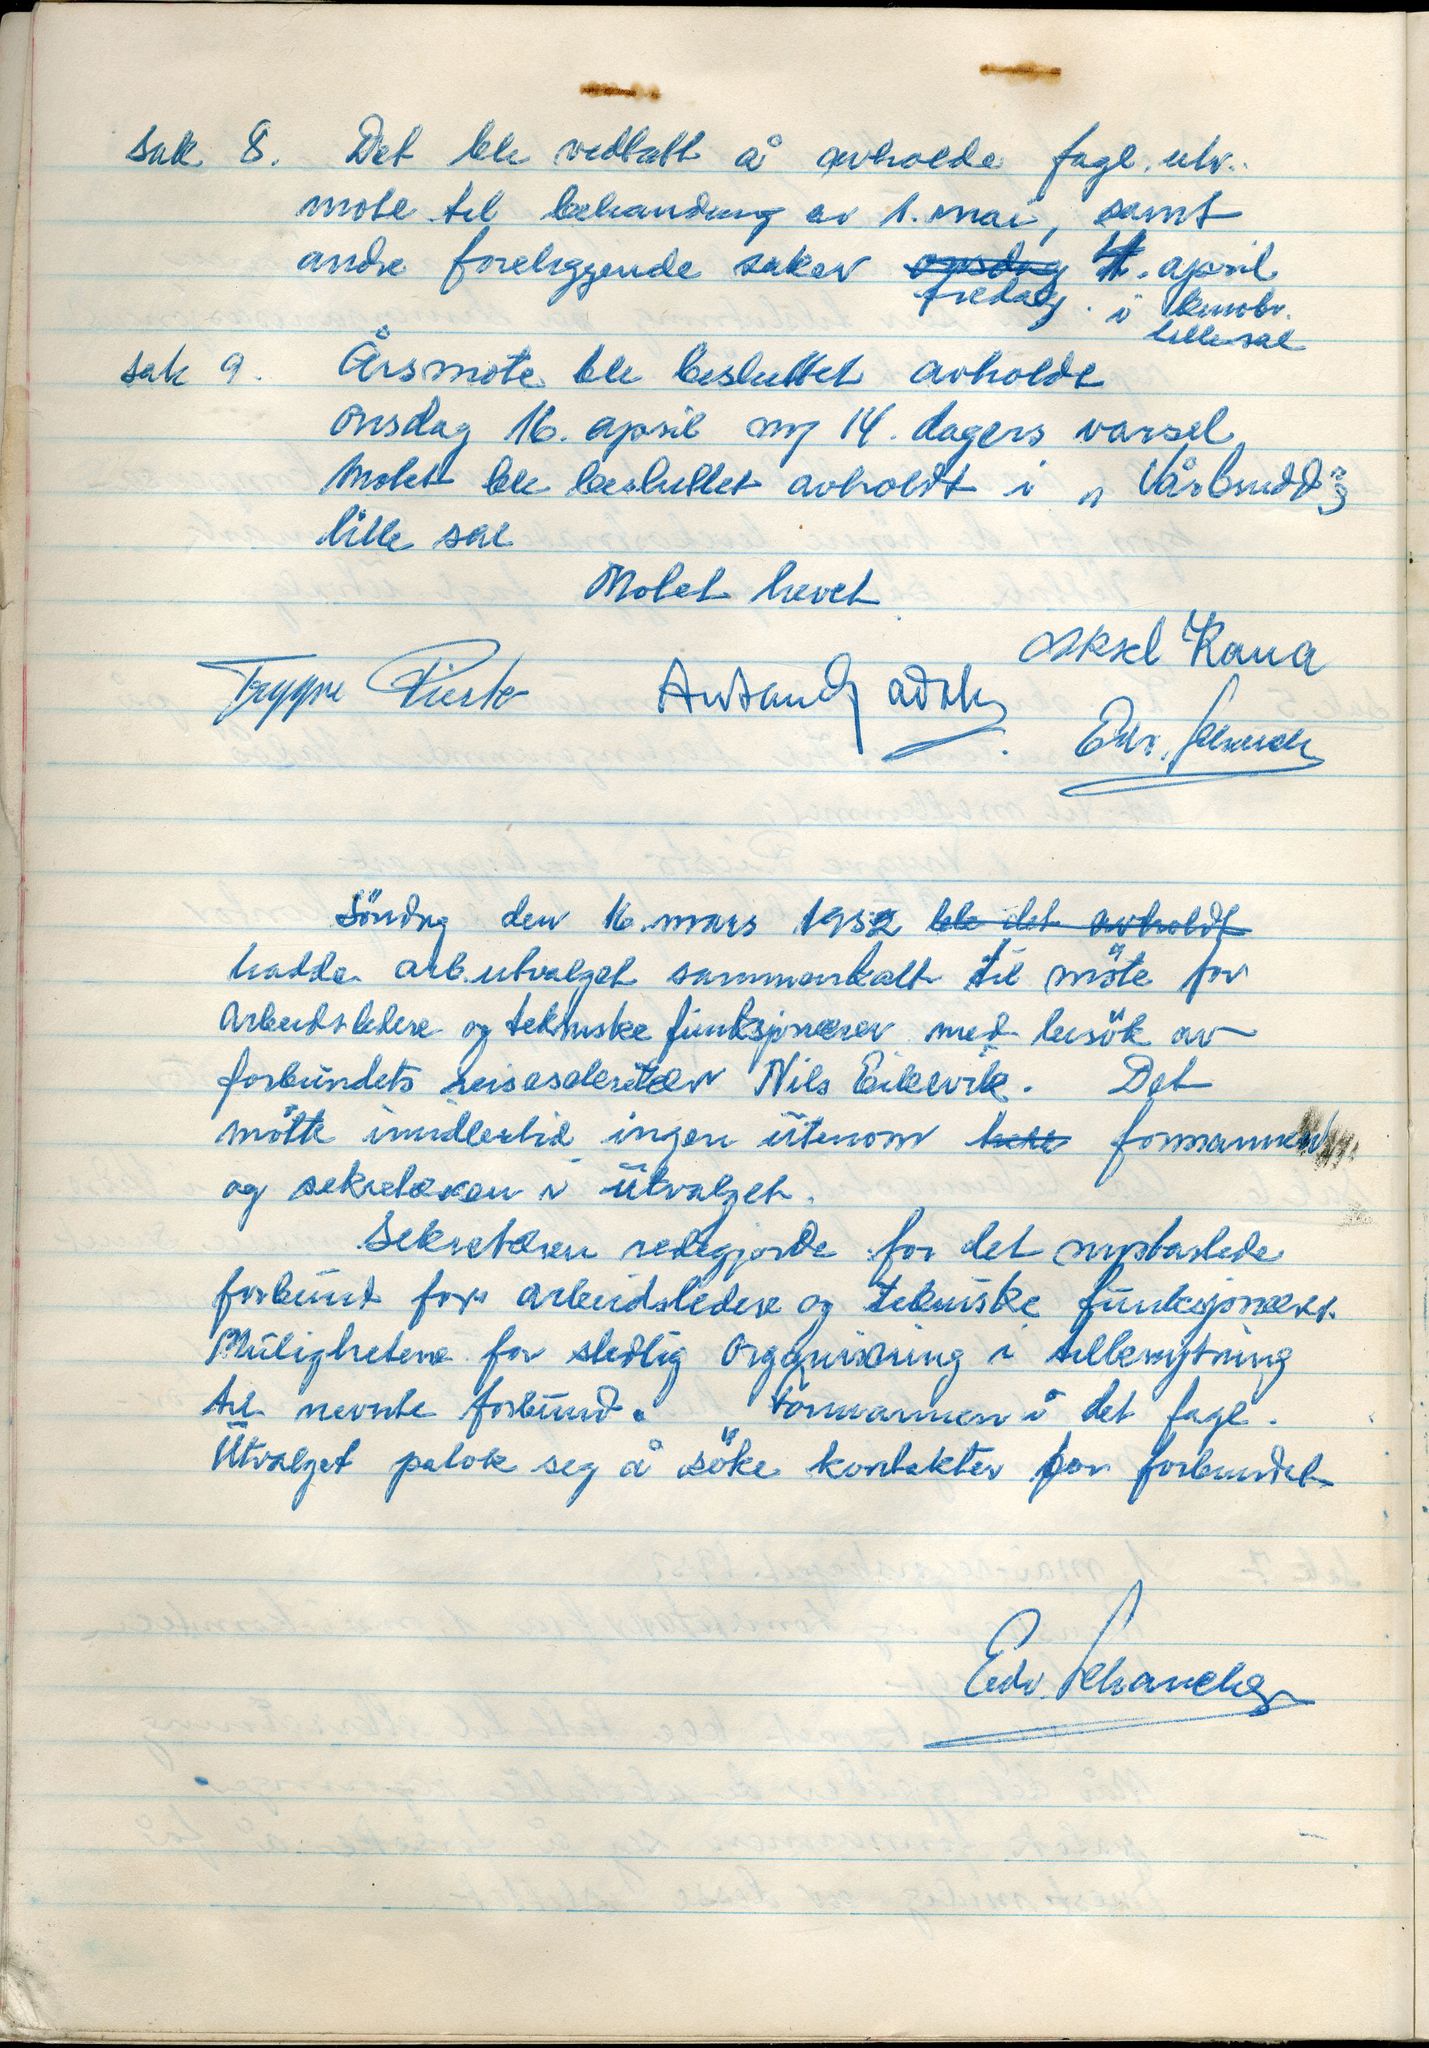 sak 8. Det ble vedtatt å avholde fagl. utv.
møte til behandling av 1. mai, samt
andre foreliggende saker onsdag 4. april
fredag i
lille sal
sak 9. Årsmøte ble besluttet avholdt
onsdag 16. april m/ 14. dagers varsel
Møtet ble besluttet avholdt i "Vårbrudd's"
lille sal
Møtet hevet
Aksel Kana
Trygve
Edv. Schancke
Søndag den 16. mars 1952 ble det avholdt
hadde arb.utvalget sammenkalt til møte for
arbeidsledere og tekniske funksjonærer med besök av
forbundets reisesekretær Nils Eikevik. Det
mötte imidlertid ingen utenom formannen
og sekretæren i utvalget.
Sekretæren redegjorde for det nystartede
forbund for arbeidsledere og tekniske funksjonærer.
Mulighetene for stedlig organisering i tilknytning
til nevnte forbund. Formannen i det fagl.
Utvalget patok seg å söke kontakter for forbundet
Edv. Schancke